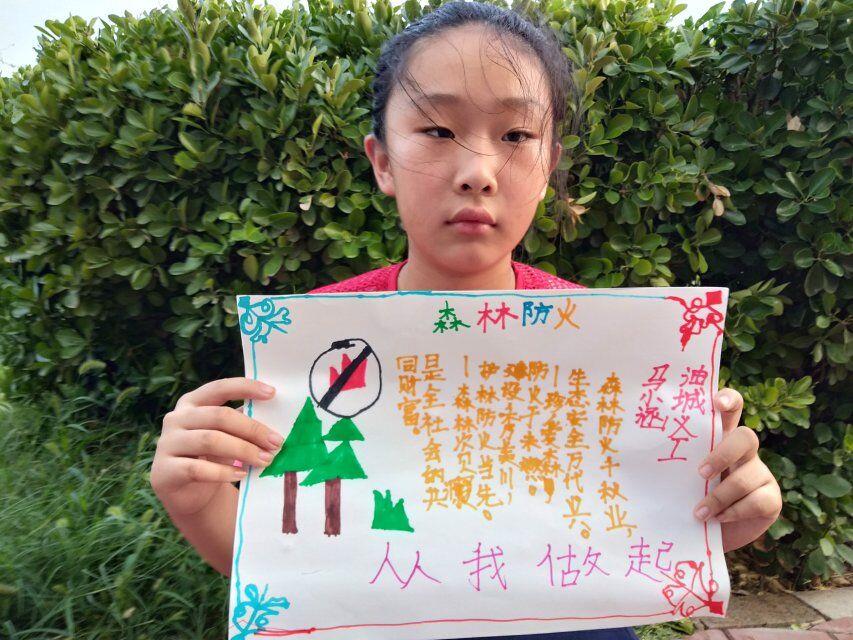 森林防火
油城义工
马小涵
森林防火千秋业,
生态安全万代兴。
珍爱森
防火于未燃,
护林防火当先。
森林
是全社会的共
同财富。
从我做起